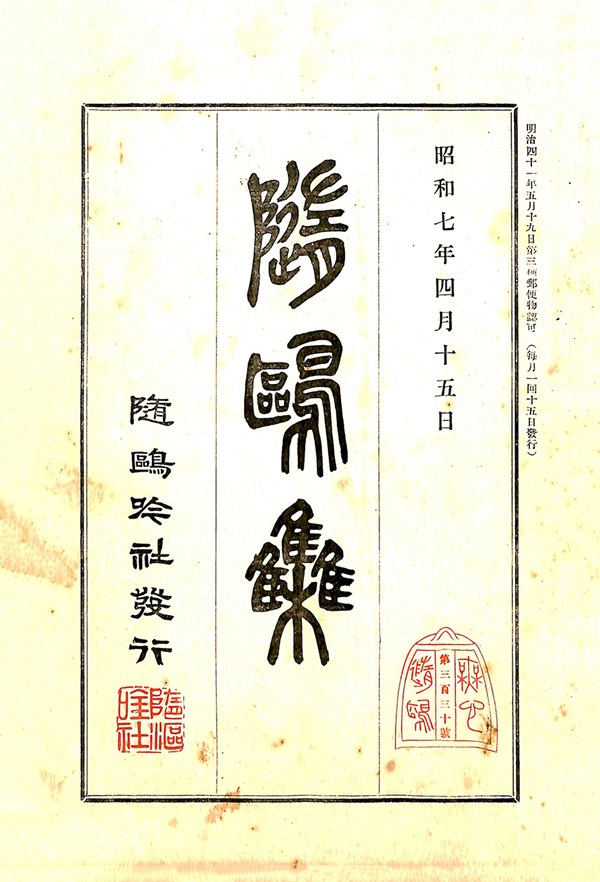 明治四十一年五月十九日第三種郵便物認可（每月一回十五日發行）
昭和七年四月十五日
隨鷗集
第三百三十號
隨鷗吟社發行